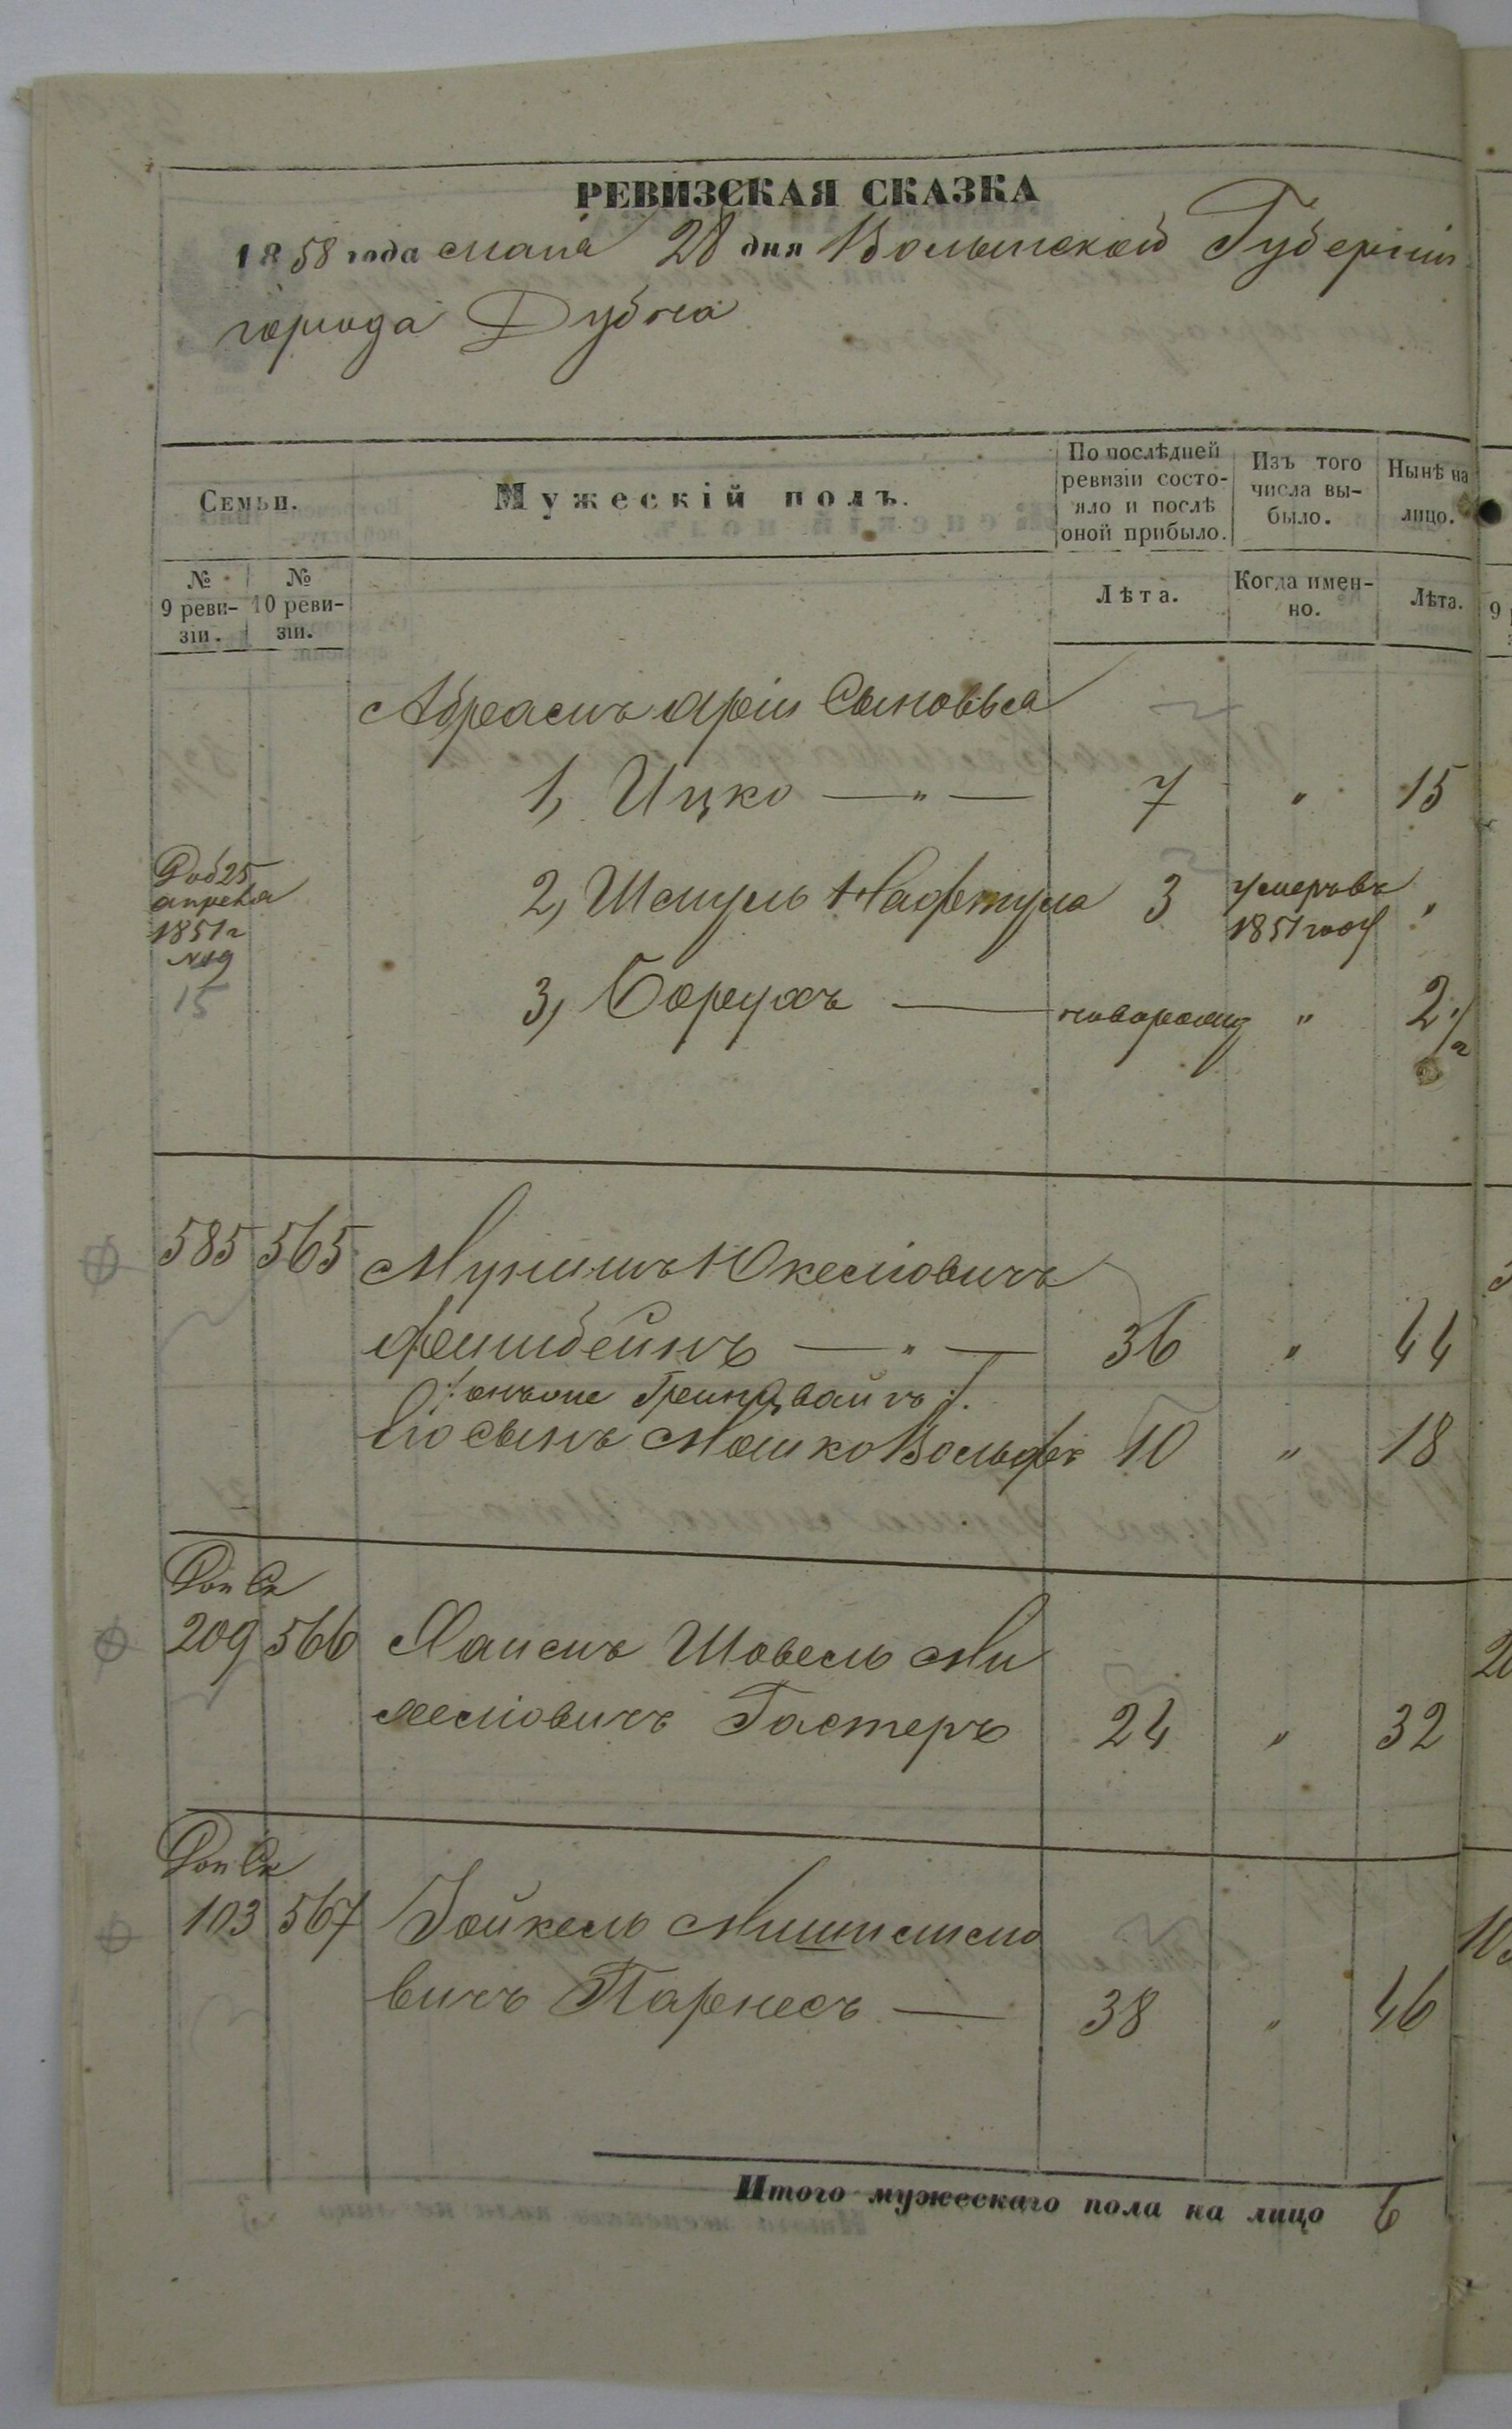 РЕВИЗСКАЯ СКАЗКА
1858 года мая 28 дня Волынской Губерніи
города Дубна
Семьи.
Мужескій полъ.
По послѣдней ревизіи состо-
яло и послѣ оной прибыло.
Изъ того числа вы-
было.
Нынѣ на лицо.
№ 9 реви-
зіи.
№ 10 реви-
зіи.
Лѣта.
Когда имен-
но.
Лѣта.
Абрамъ Арiи Сыновья
1, Ицко — " — 7 " 15
2, Шмуль Нафтула 3 умеръ въ 1851 году "
апреля
1851 г
№ 19
15
3, Борухъ — новорожд " 2 1/2
585 565
Мунишъ Юкелiовичъ
Фишбейнъ — " — 36 " 44
онъ же
Его сынъ Мошко Вольфъ 10 " 18
Доп Ск
209 566 Хаимъ Шовель Ми
хелiовичъ Гастеръ 24 " 32
Доп Ск
103 567 Йойкель
вичъ Парнесъ — 38 " 46
Итого мужескаго пола на лицо 6